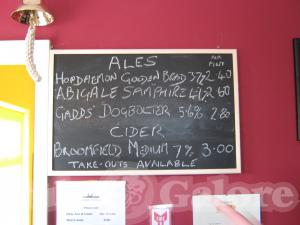 ALES
PER
PINT
HOPDAEMON GOLDEN BRAID 3.7% 2.40
ABIGALE SAMPHIRE 4.1% 2.60
GADDS' DOGBOLTER 5.6% 2.80
CIDER
BROOMFIELD MEDIUM 7% 3.00
TAKE-OUTS AVAILABLE
Galore